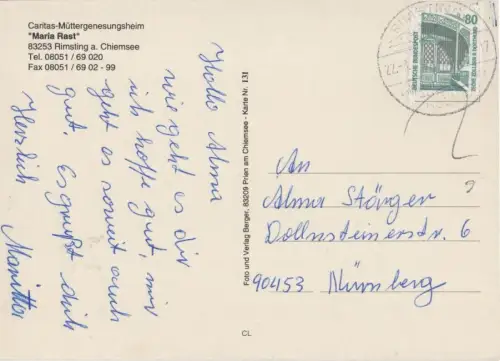 Caritas-Müttergenesungsheim
"Maria Rast"
83253 Rimsting a. Chiemsee
Tel. 08051 / 69 020
Fax 08051 / 69 02 - 99
Hallo Alma
wie geht es dir
ich hoffe gut, mir
geht es soweit auch
gut. Es grüßt dich
Herzlich
Foto und Verlag Berger, 83209 Prien am Chiemsee - Karte Nr. 131
80
DEUTSCHE BUNDESPOST
An
Alma Störger
Dollnsteinerstr. 6
90453 Nürnberg
CL